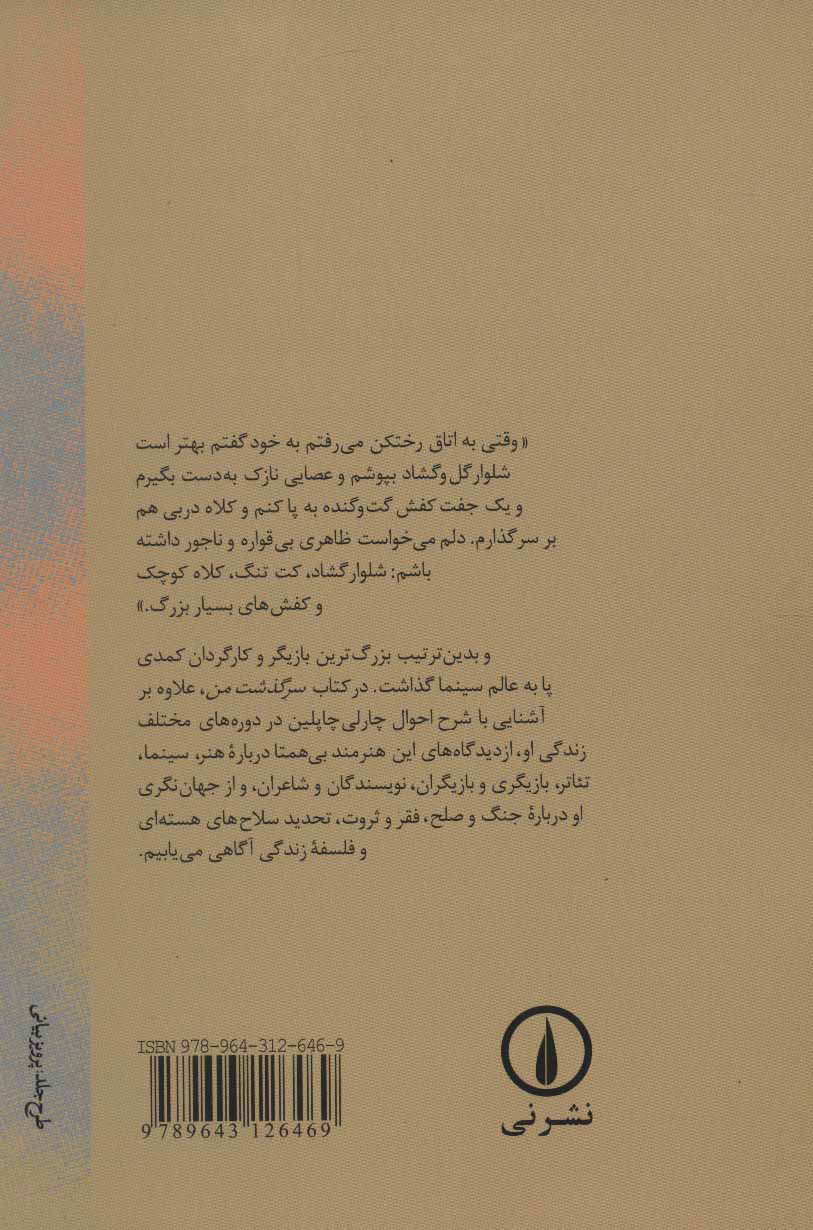 « وقتی به اتاق رختکن می‌رفتم به خود گفتم بهتر است
شلوار گل‌وگشاد بپوشم و عصایی نازک به‌دست بگیرم
و یک جفت کفش گت‌وگنده به پا کنم و کلاه دربی هم
بر سر گذارم. دلم می‌خواست ظاهری بی‌قواره و ناجور داشته
باشم: شلوار گشاد، کت تنگ، کلاه کوچک
و کفش‌های بسیار بزرگ.»
و بدین‌ترتیب بزرگ‌ترین بازیگر و کارگردان کمدی
پا به عالم سینما گذاشت. در کتاب سرگذشت من، علاوه بر
آشنایی با شرح احوال چارلی چاپلین در دوره‌های مختلف
زندگی او، از دیدگاه‌های این هنرمند بی‌همتا دربارهٔ هنر، سینما،
تئاتر، بازیگری و بازیگران، نویسندگان و شاعران، و از جهان‌نگری
او دربارهٔ جنگ و صلح، فقر و ثروت، تحدید سلاح‌های هسته‌ای
و فلسفهٔ زندگی آگاهی می‌یابیم.
طرح جلد: پرویز بیانی
ISBN 978-964-312-646-9
9 789643 126469
نشر نی